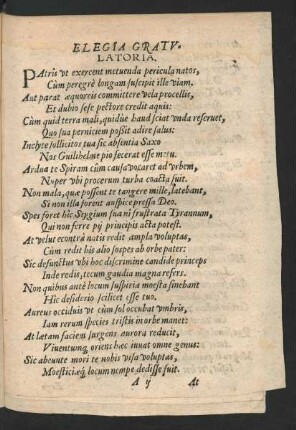 ELEGIA GRATV-
LATORIA.
PAtris vt exercent metuenda pericula natos,
Cùm peregrè longam suscipit ille viam.
Aut parat æquoreis committere vela procellis,
Et dubio sese pectore credit aquis:
Cùm quid terra mali, quidúe haud sciat vnda reseruet,
Quo sua perniciem possit adire salus:
Inclyte sollicitos tua sic absentia Saxo
Nos Guilhelme pio fecerat esse metu.
Ardua te Spiram cùm causa vocaret ad vrbem,
Nuper vbi procerum turba coacta fuit.
Non mala, quæ possent te tangere mille, latebant,
Si non illa forent auspice pressa Deo.
Spes foret hic Stygium sua ni frustrata Tyrannum,
Qui non ferre pij principis acta potest.
At velut econtrà natis redit ampla voluptas,
Cùm redit his alio sospes ab orbe pater:
Sic defunctus vbi hoc discrimine candide princeps
Inde redis, tecum gaudia magna refers.
Non quibus antè locum suspiria moesta sinebant
Hic desiderio scilicet esse tuo.
Aureus occiduis vt cùm sol occubat vmbris,
Iam rerum species tristis in orbe manet:
At lætam faciem surgens aurora reducit,
Viuentumq; oriens hæc iuuat omne genus:
Sic abeunte mori te nobis visa voluptas,
Moesticiæq; locum nempe dedisse fuit.
A ij At